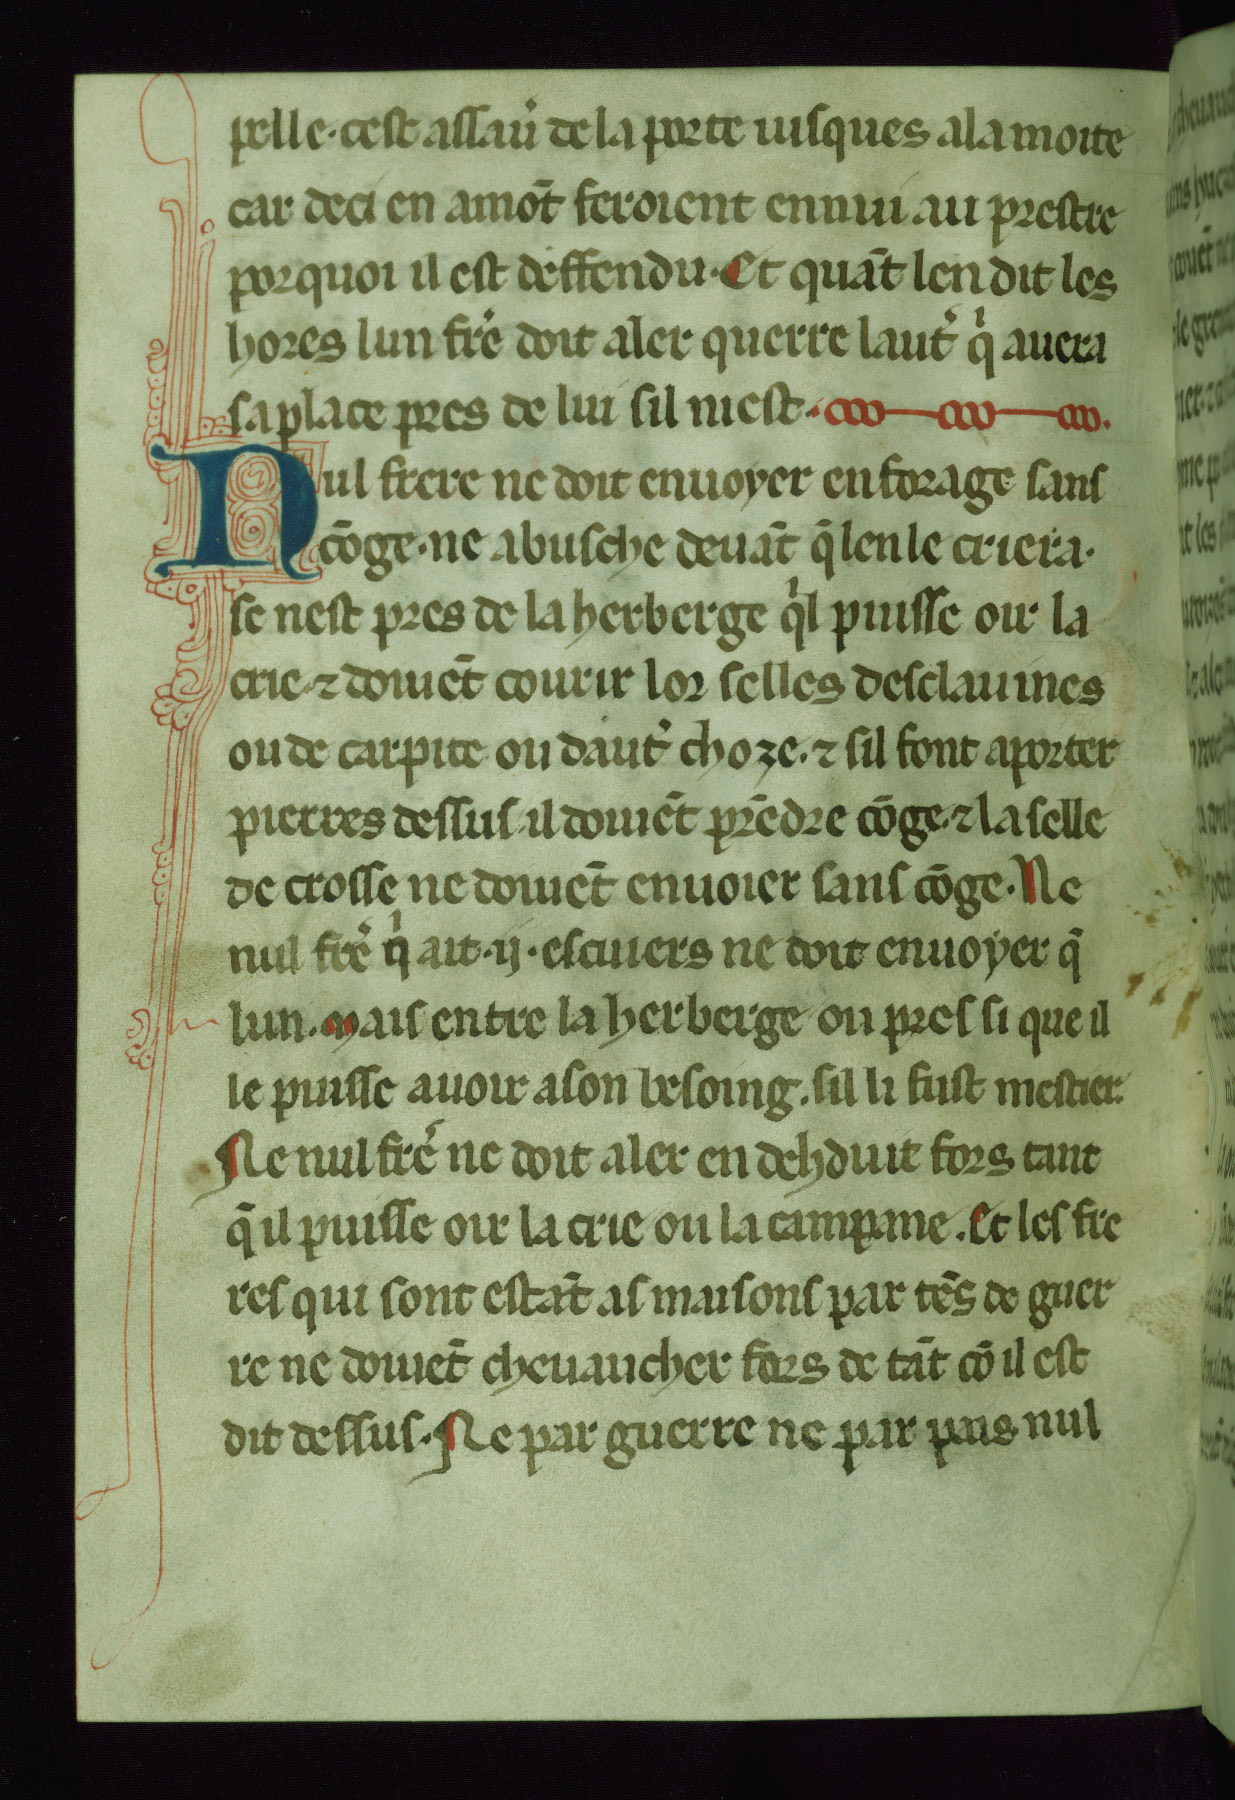 pelle · cest assaũ de la porte iusques a la moite
car deci en amōt feroient ennui au prestre
porquoi il est deffendu · Et quāt len dit les
hores lun frẽ doit aler querre lautˀ qͥ auera
sa place pres de lui sil niest ·
Nul frere ne doit enuoyer en forage sans
cōge · ne a busche deuāt q̄ len le criera ·
se nest pres de la herberge qͥl puisse oir la
crie · ⁊ doiuēt courir lor selles desclauines
ou de carpite ou dautˀ choze · ⁊ sil font aporter
pierres dessus il doiuēt prēdre cōge · ⁊ la selle
de crosse ne doiuēt enuoier sans cōge · Ne
nul frẽ qͥ ait · ij · escuiers ne doit enuoyer q̄
lun · mais entre la herberge ou pres si que il
le puisse auoir a son besoing · sil li fust mestier ·
Ne nul frẽ ne doit aler en dehduit fors tant
q̄ il puisse oir la crie ou la campane · Et les fre
res qui sont estāt as maisons par tēs de guer
re ne doiuēt cheuaucher fors de tāt cō il est
dit dessus · Ne par guerre ne par pais nul